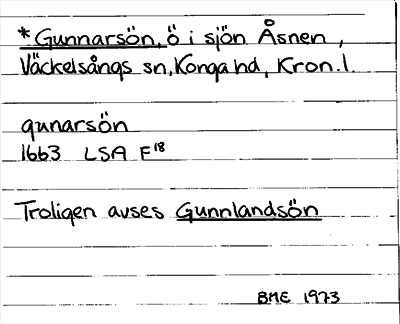 *Gunnarsön, ö i sjön Åsnen,
Väckelsångs sn, Konga hd, Kron. l.
gunarsön
1663 LSA F18
Troligen avses Gunnlandsön
BME 1973